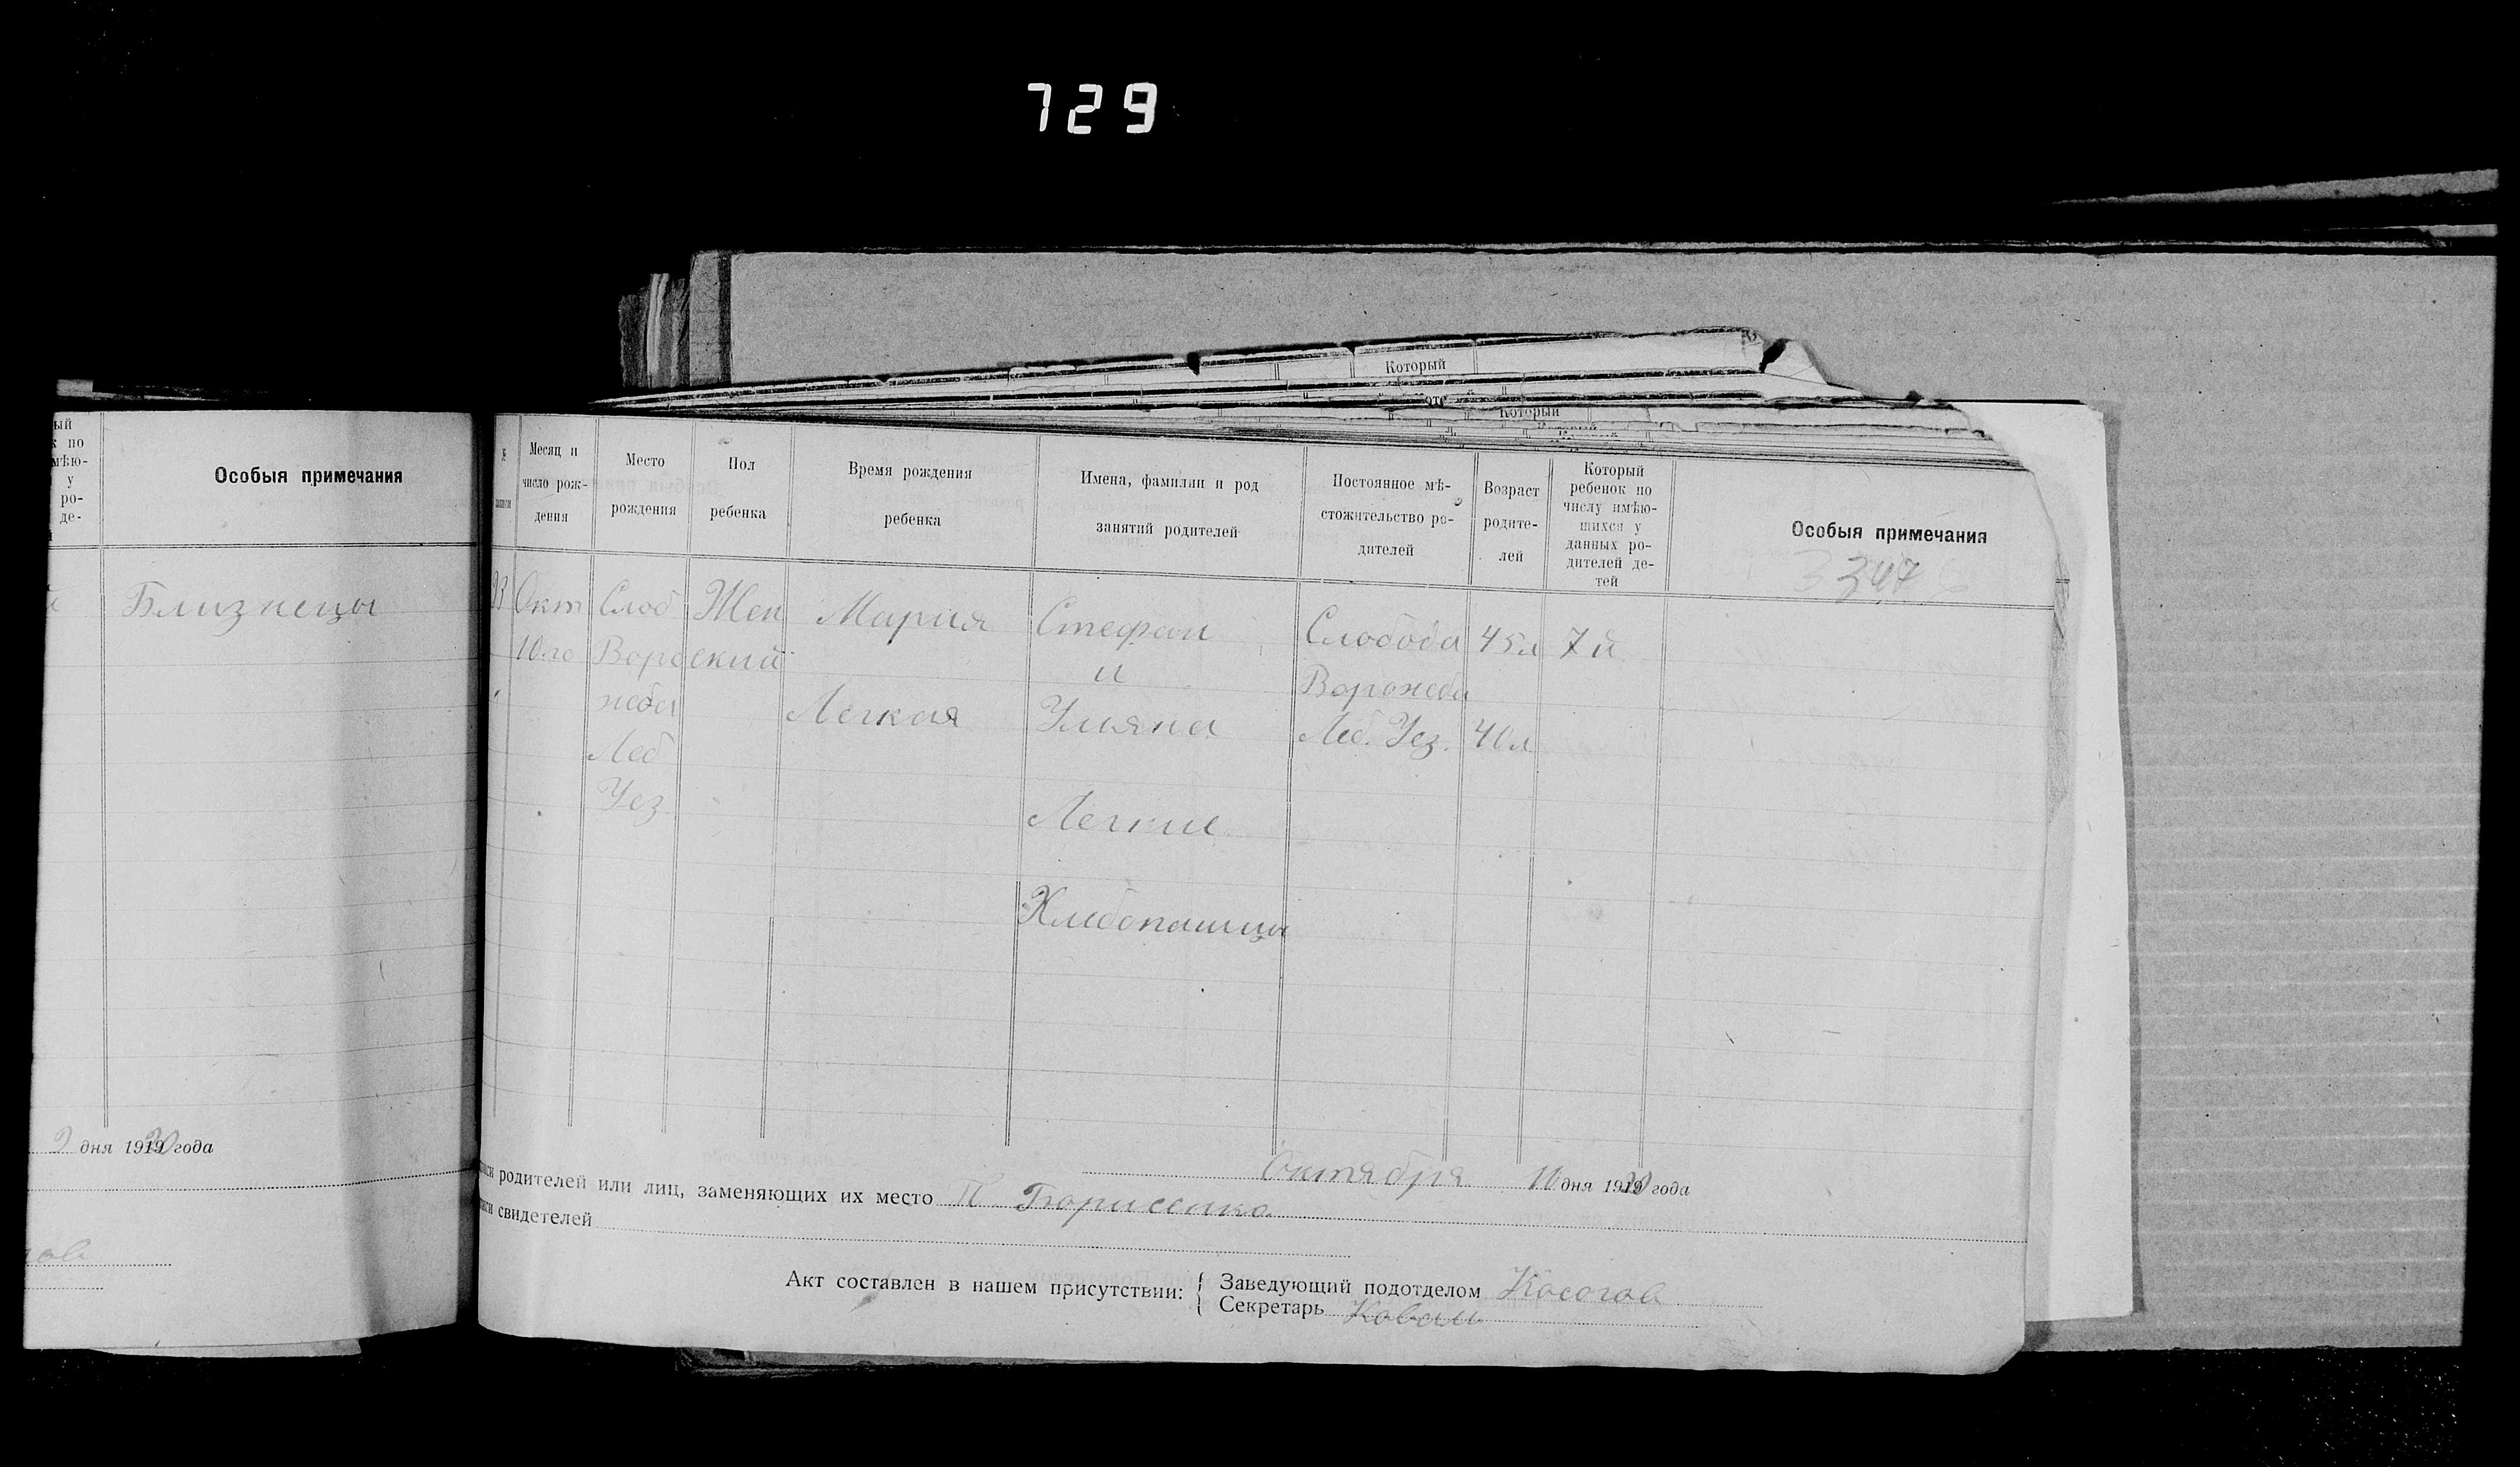 729
Который
Который
ый
к по
мѣю-
у
ро-
де-
Особыя примечания
Близнецы
дня 1920 года
Месяц и
число рож-
дения
Место
рождения
Пол
ребенка
Время рождения
ребенка
Имена, фамилии и род
занятий родителей
Постоянное мѣ-
стожительство ро-
дителей
Возраст
родите-
лей
Который
ребенок по
числу имѣю-
щихся у
данных ро-
дителей де-
тей
Особыя примечания
347
Окт
10го
Слоб
Воро
жеба
Леб
Уез
Жен
ский
Мария
Легкая
Стефан
и
Улияна
Легкие
Хлебопашцы
Слобода
Ворожеба
Леб. Уез.
45л
40л
7й
Октября 10 дня 1920 года
родителей или лиц, заменяющих их место П Борисенко
свидетелей
Акт составлен в нашем присутствии:
Заведующий подотделом Косогов
Секретарь Коваль